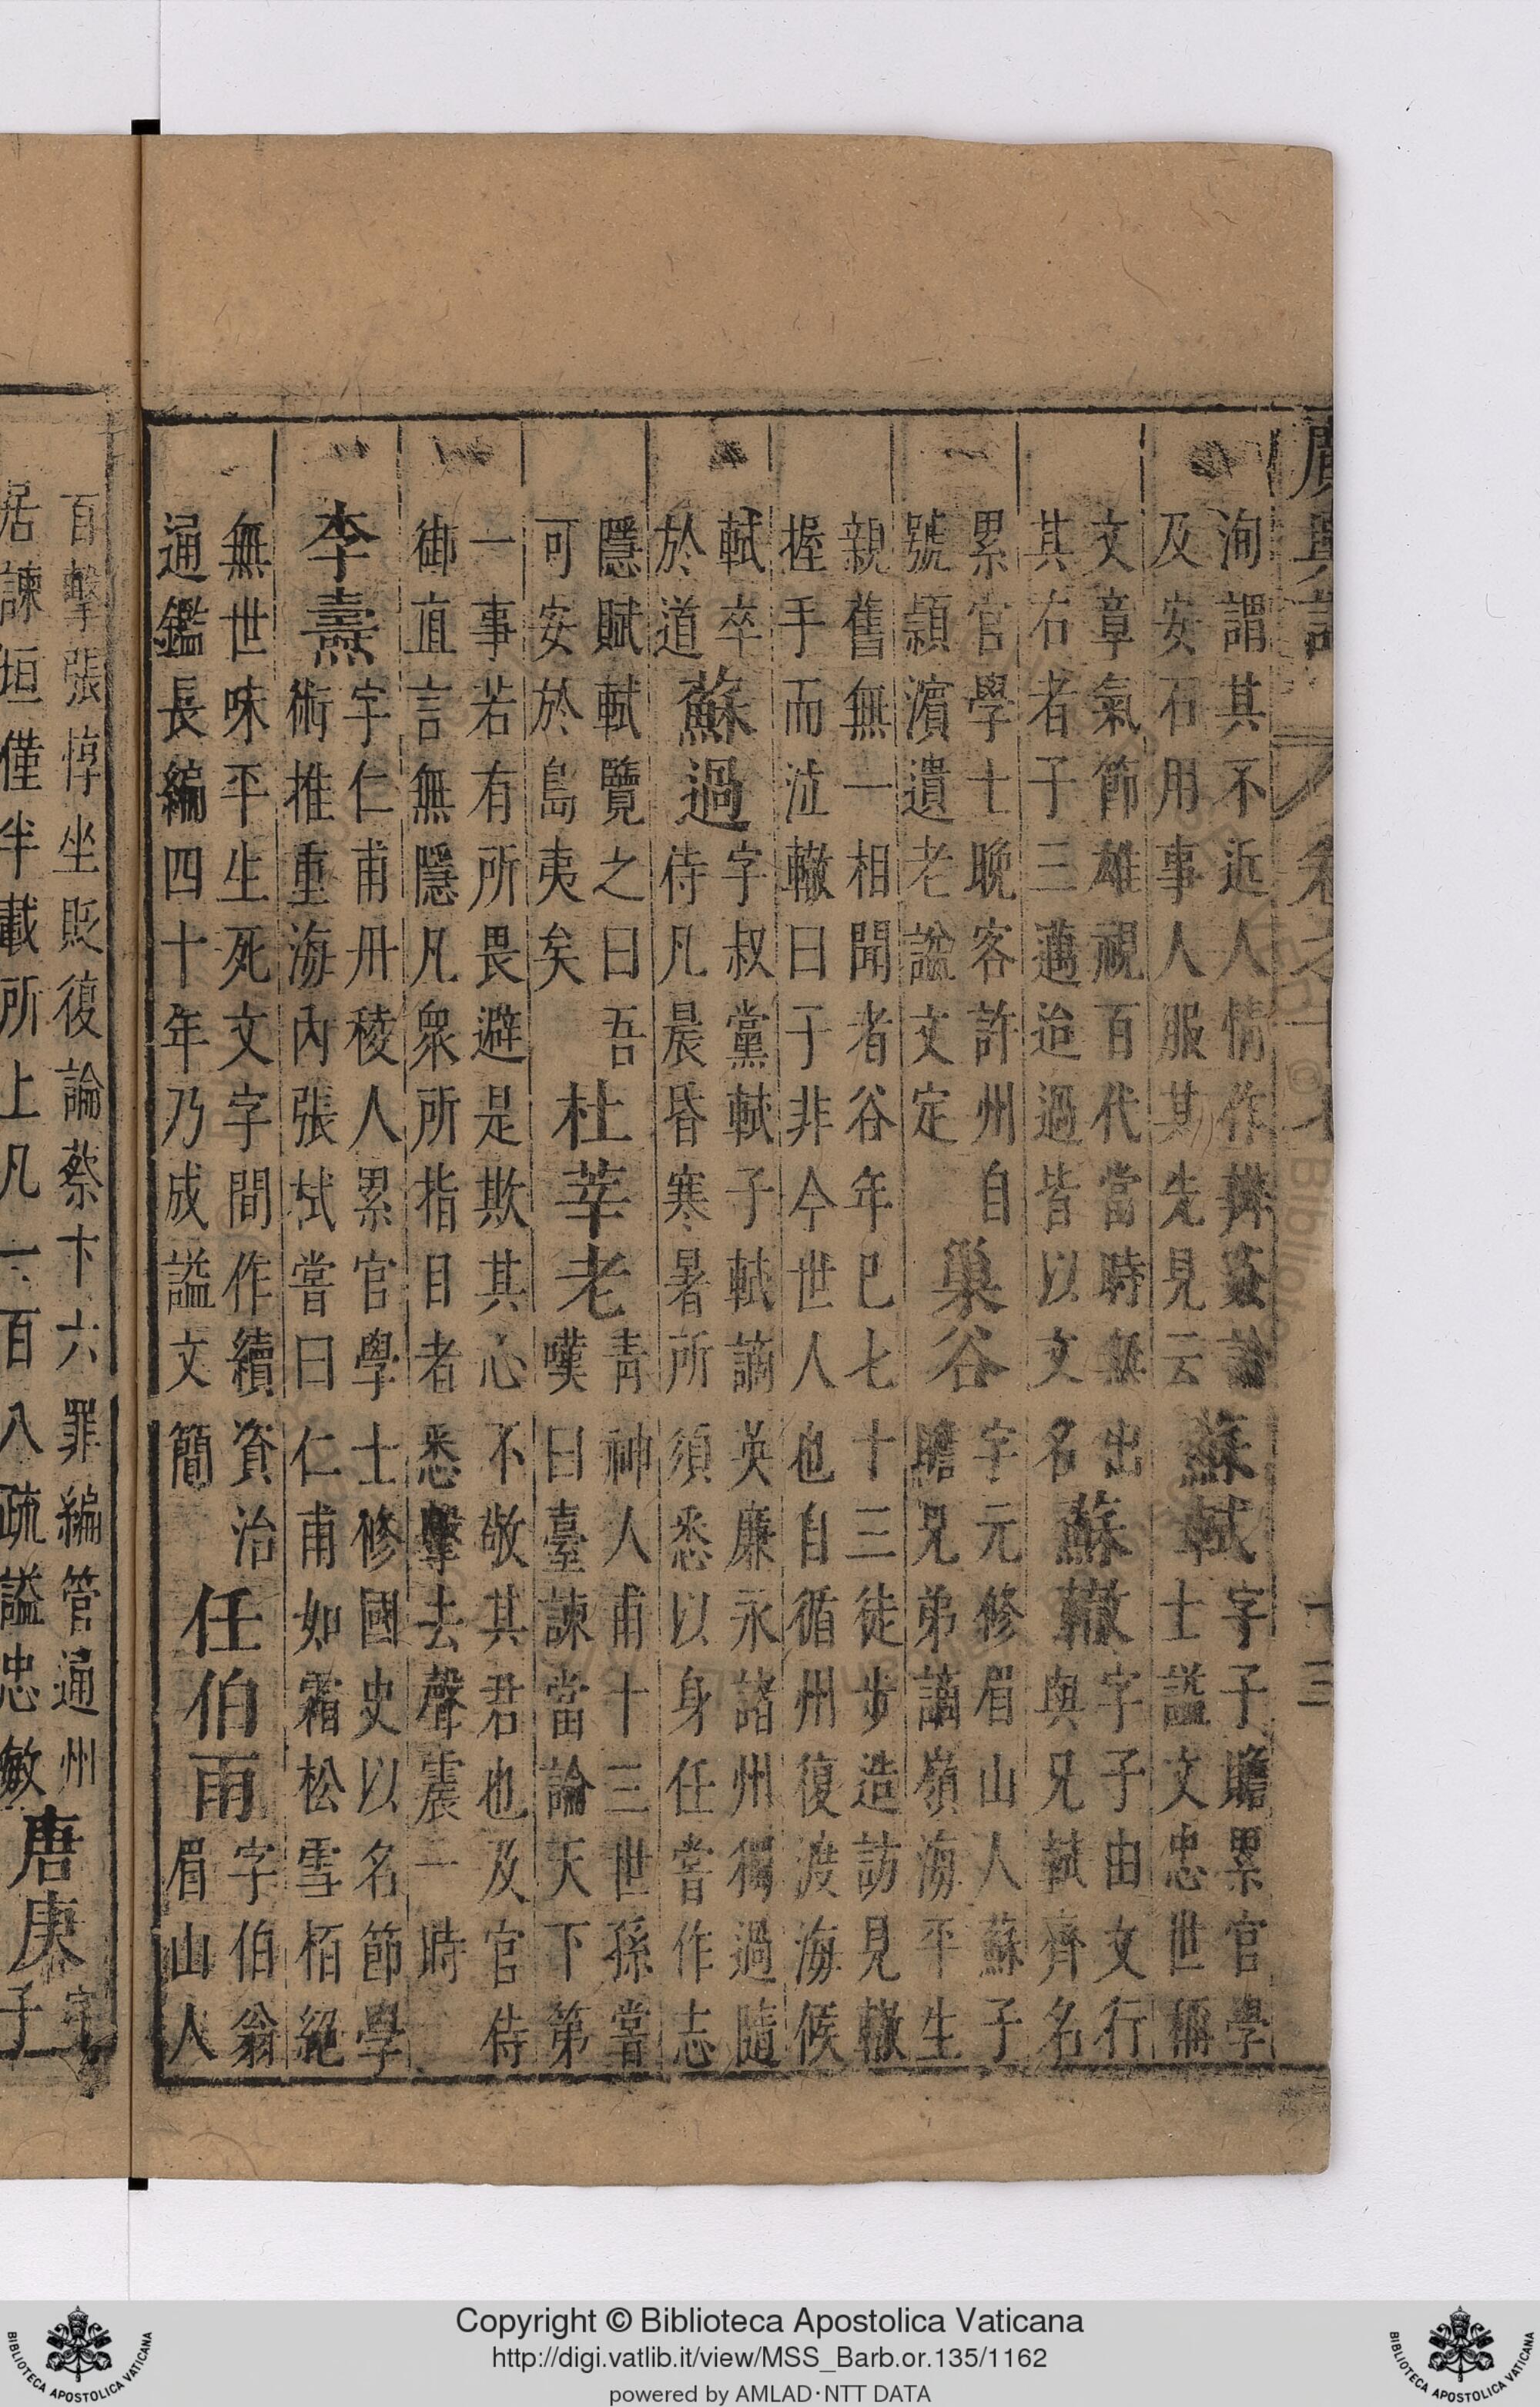 廣輿記 卷之十六 十三
洵謂其不近人情作辨姦論
及安石用事人服其先見云
蘇軾
字子瞻累官學
士謚文忠世稱
文章氣節雄視百代當時無出
其右者子三邁迨過皆以文名
蘇轍
字子由文行
與兄軾齊名
累官學士晚客許州自
號潁濱遺老謚文定
巢谷
字元修眉山人蘇子
瞻兄弟謫嶺海平生
親舊無一相聞者谷年已七十三徒步造訪見轍
握手而泣轍曰于非今世人也自循州復渡海候
軾卒
於道
蘇過
字叔黨軾子軾謫英廉永諸州獨過隨
侍凡晨昏寒暑所須悉以身任嘗作志
隱賦軾覽之曰吾
可安於島夷矣
杜莘老
青神人甫十三世孫嘗
嘆曰臺諫當論天下第
一事若有所畏避是欺其心不敬其君也及官侍
御直言無隱凡衆所指目者悉擊去聲震一時
李燾
字仁甫丹稜人累官學士修國史以名節學
術推重海內張栻嘗曰仁甫如霜松雪栢絕
無世味平生死文字間作續資治
通鑑長編四十年乃成謚文簡
任伯雨
字伯翁
眉山人
百擊張惇坐貶復論蔡卞六罪編管通州
居諫垣僅半載所上凡一百八疏謚忠敏
唐庚
字
子
Copyright © Biblioteca Apostolica Vaticana
http://digi.vatlib.it/view/MSS_Barb.or.135/1162
powered by AMLAD·NTT DATA
BIBLIOTECA APOSTOLICA VATICANA
BIBLIOTECA APOSTOLICA VATICANA